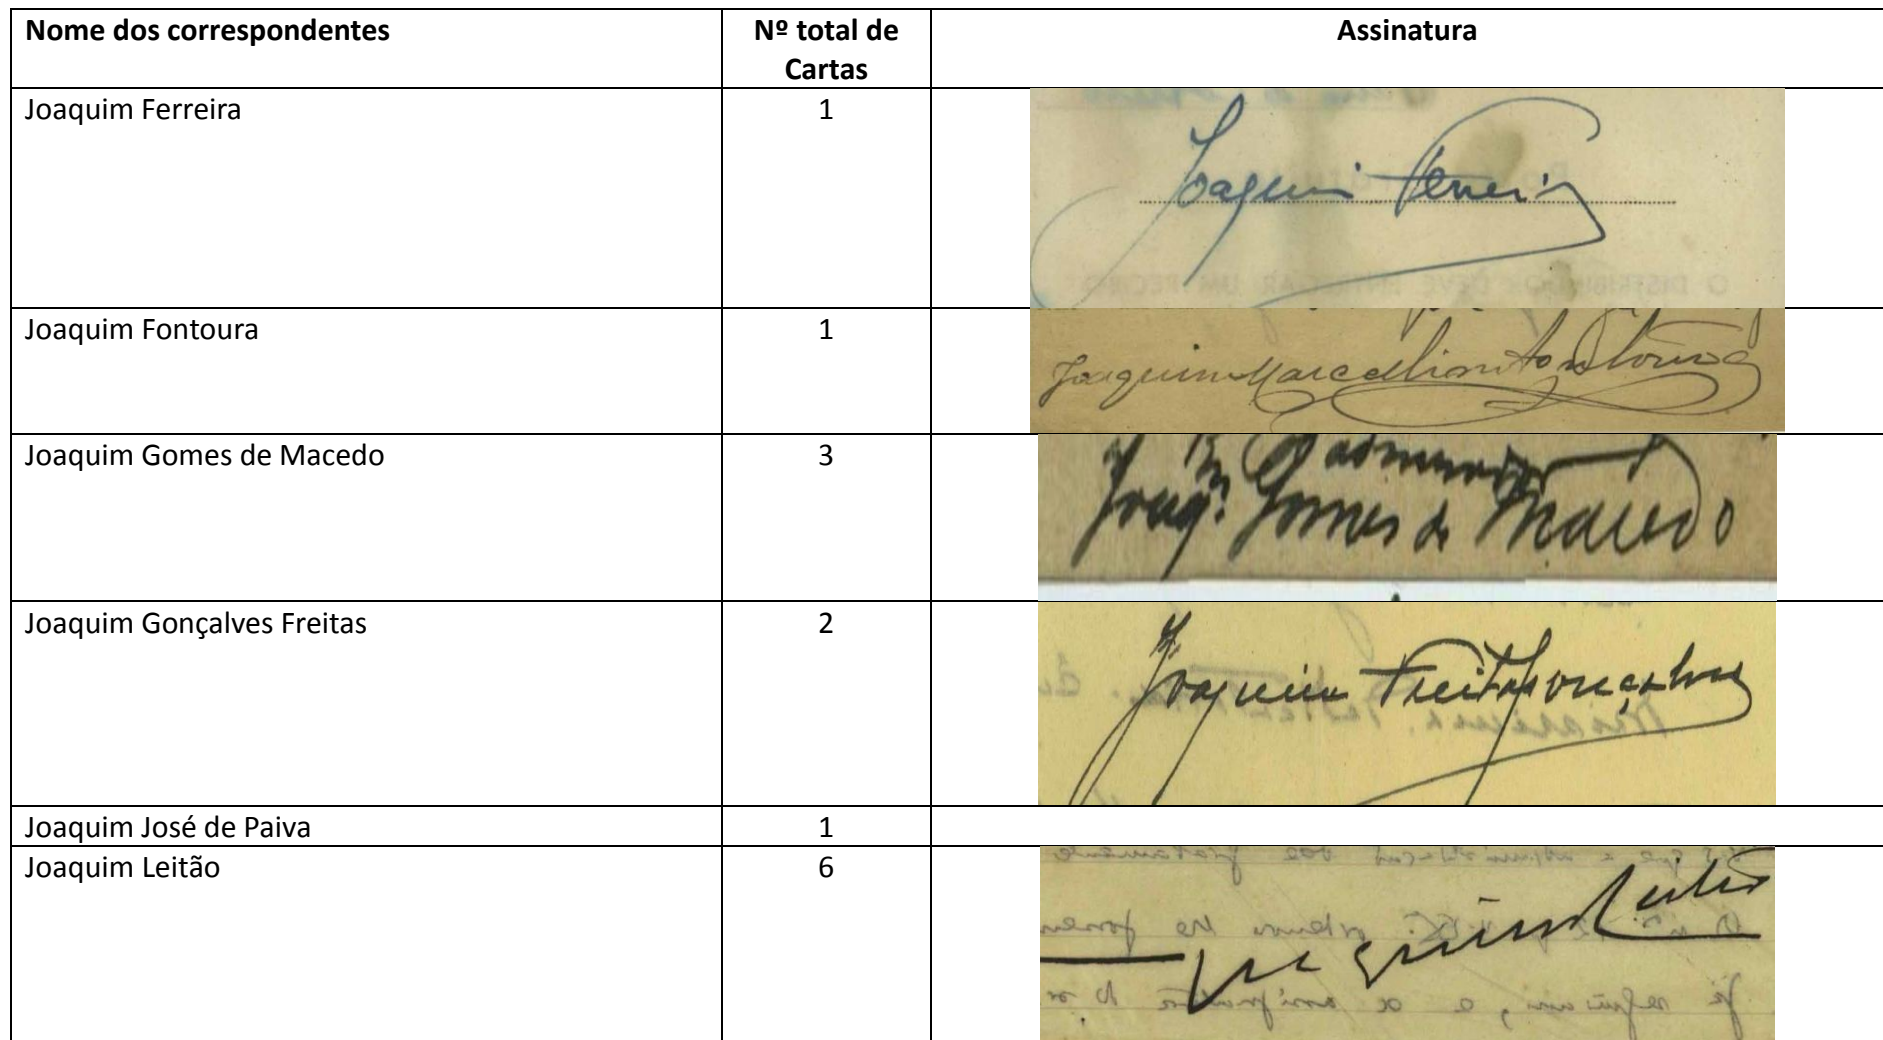 Nome dos correspondentes
Nº total de
Cartas
Assinatura
Joaquim Ferreira
1
Joaquim Ferreira
O DISTRIBUIDOR DEVE ENTREGAR UM RECIBO
Joaquim Fontoura
1
Joaquim Marcellino Fontoura
Joaquim Gomes de Macedo
3
Joaqm. Gomes de Macedo
Joaquim Gonçalves Freitas
2
Joaquim Freitas Gonçalves
Joaquim José de Paiva
1
Joaquim Leitão
6
Joaquim Leitão